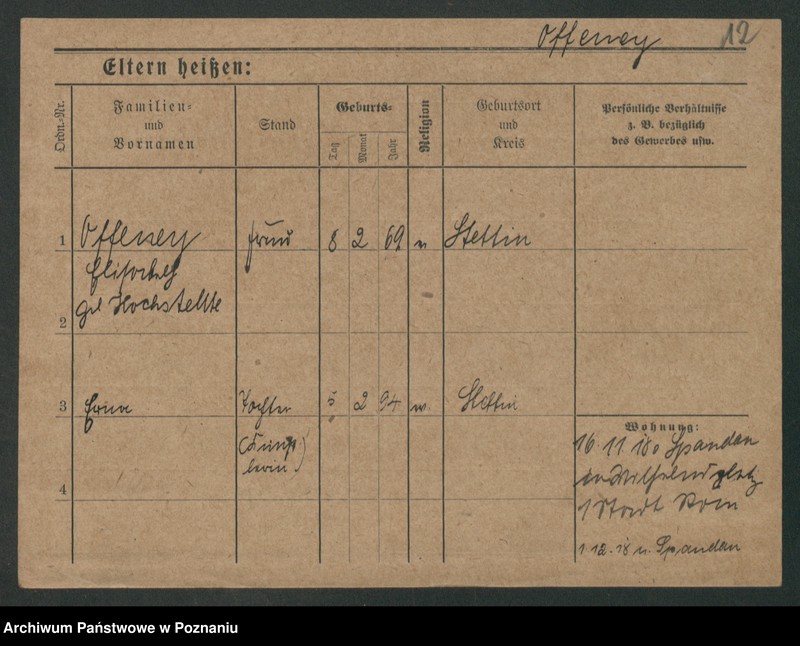 Offeney 12
Eltern heißen:
Ordn.-Nr.
Familien-
und
Vornamen
Stand
Geburts-
Tag
Monat
Jahr
Religion
Geburtsort
und
Kreis
Persönliche Verhältnisse
z. B. bezüglich
des Gewerbes usw.
1 Offeney Frau 8 2 69 Stettin
Elisabeth
Hochstellte
2
3 Erna Tochter 5 2 94 Stettin
4
Wohnung:
16. 11. 18 Spandau
Wilhelmplatz
1 Stadt
1. 12. 18 n. Spandau
Archiwum Państwowe w Poznaniu